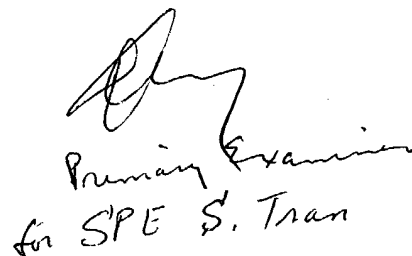 Primary Examiner
for SPE S. Tran